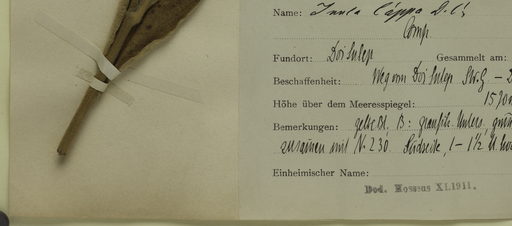 Name: Inula Cappa D.C.
Comp.
Fundort: Doi Sutep Gesammelt am:
Beschaffenheit: Weg vom Doi Sutep
Höhe über dem Meeresspiegel: 1570
Bemerkungen: gelbe Bl. B:
zusammen mit No 230
Einheimischer Name:
Ded. Hosseus XI.1911.